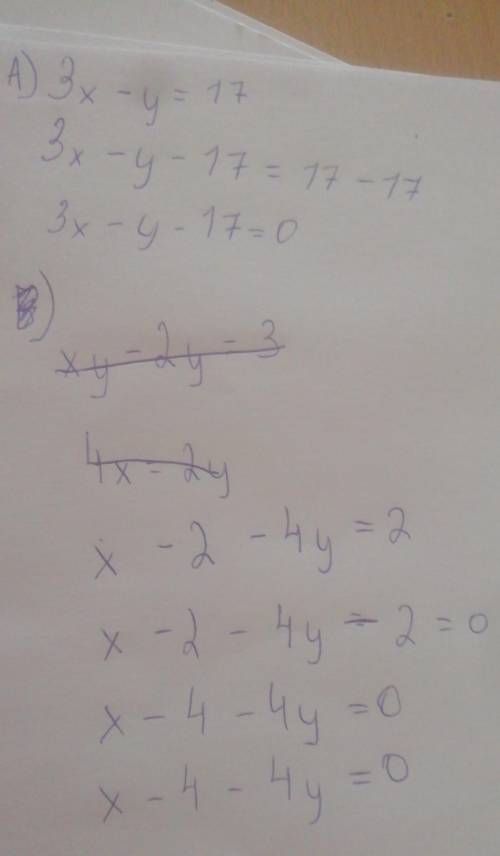 A) 3x - y = 17
3x - y - 17 = 17 - 17
3x - y - 17 = 0
)
xy - 2y - 3
4x - 2y
x - 2 - 4y = 2
x - 2 - 4y - 2 = 0
x - 4 - 4y = 0
x - 4 - 4y = 0